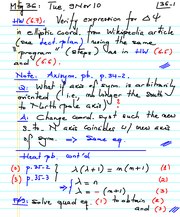 Mtg 36: Tue, 9 Nov 10 136-1
HW (6.7): Verify expression for Δψ
in elliptic coord. from Wikipedia article
(see lect. plan) using the same
"program" (steps) as in HW (6.5)
and (6.6).
Note: Axisym. pb. p.34-2.
Q: What if axis of sym. is arbitrarily
oriented (i.e., no longer the South
to North pole axis)
A: Change coord. syst such the new
S to N axis coincides w/ new axis
of sym. ⇒ Same eq.
Heat pb, contd
(2) p.35-2 λ(λ+1) = n(n+1) (1)
(3) p.35-3 λ = n (2)
λ = -(n+1) (3)
Solve quad eq. (1) to obtain
(2) and (3)